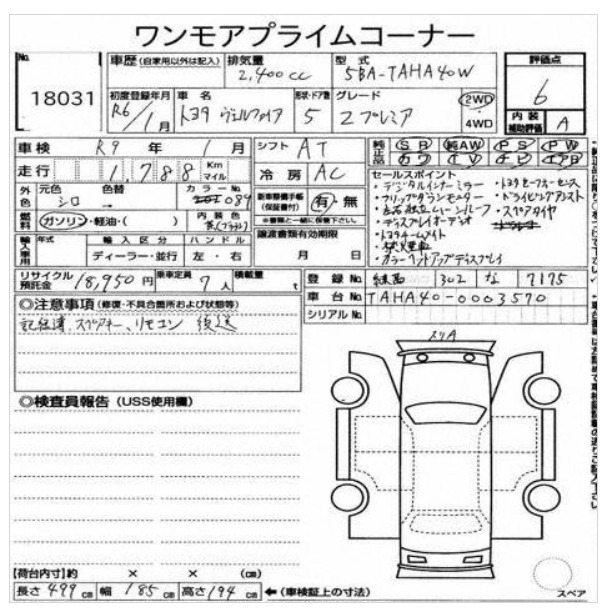 ワンモアプライムコーナー
No. 18031
車歴 (自家用以外は記入) 排気量 2,400cc 型式 5BA-TAHA40W 評価点 6
初度登録年月 R6/1月 車名 トヨタ ヴェルファイア 形状・ドア数 5 グレード Z プレミア 2WD 4WD 内装補助評価 A
車検 R9年 1月 シフト AT 純正品 SR 純AW PS PW
走行 1,788 Km マイル 冷房 AC カワ TV ナビ エアB
外色 元色 シロ 色替 → カラーNo. 089
新車整備手帳 (保証書付) 有・無
※書類と一緒に保管下さい。
燃料 ガソリン・軽油・( ) 内装色 茶(ブラウン)
譲渡書類有効期限 月 日
輸入車用 年式 輸入区分 ディーラー・並行 ハンドル 左・右
セールスポイント
・デジタルインナーミラー
・フリップダウンモニター
・左右独立ムーンルーフ
・ディスプレイオーディオ
・トヨタチームメイト
・禁煙車
・カラーヘッドアップディスプレイ
・トヨタセーフティセンス
・ドライビングアシスト
・スペアタイヤ
リサイクル預託金 18,950円 乗車定員 7人 積載量 t
登録No. 練馬 302 な 7175
車台No. TAHA40-0003570
シリアルNo.
◎注意事項 (修復・不具合箇所および状態等)
記録簿、スペアキー、リモコン 後送
スリA
◎検査員報告 (USS使用欄)
【荷台内寸】約 × × (cm)
長さ 499 cm 幅 185 cm 高さ 194 cm ←(車検証上の寸法)
スペア